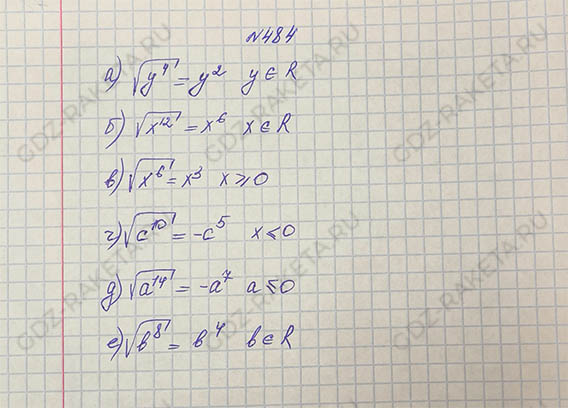 №484
а) √y⁴ = y² y ∈ R
б) √x¹² = x⁶ x ∈ R
в) √x⁶ = x³ x ⩾ 0
г) √c¹⁰ = -c⁵ x ⩽ 0
д) √a¹⁴ = -a⁷ a ⩽ 0
е) √b⁸ = b⁴ b ∈ R
GDZ-RAKETA.RU
GDZ-RAKETA.RU
GDZ-RAKETA.RU
GDZ-RAKETA.RU
GDZ-RAKETA.RU
GDZ-RAKETA.RU